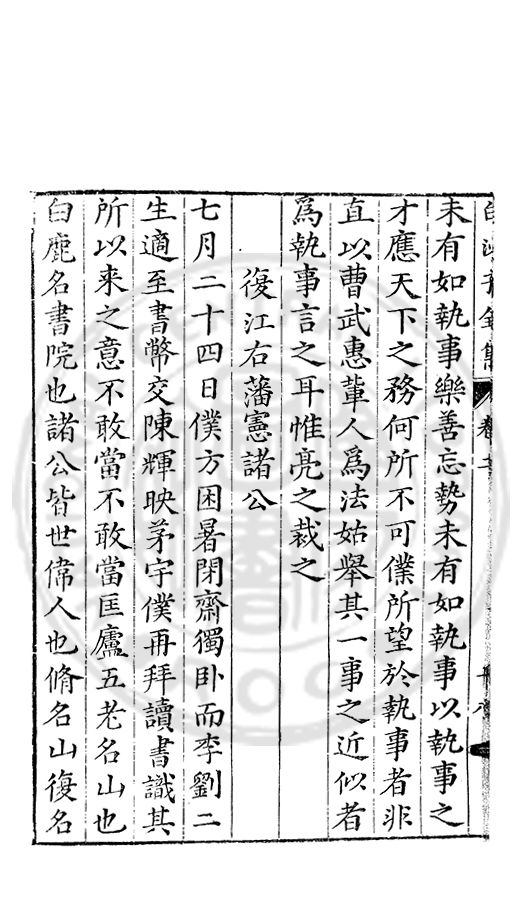 未有如執事樂善忘勢未有如執事以執事之
才應天下之務何所不可僕所望於執事者非
直以曹武惠輩人爲法姑舉其一事之近似者
爲執事言之耳惟亮之裁之
復江右藩憲諸公
七月二十四日僕方困暑閉齋獨卧而李劉二
生適至書幣交陳輝映茅宇僕再拜讀書識其
所以来之意不敢當不敢當匡廬五老名山也
白鹿名書院也諸公皆世偉人也脩名山復名